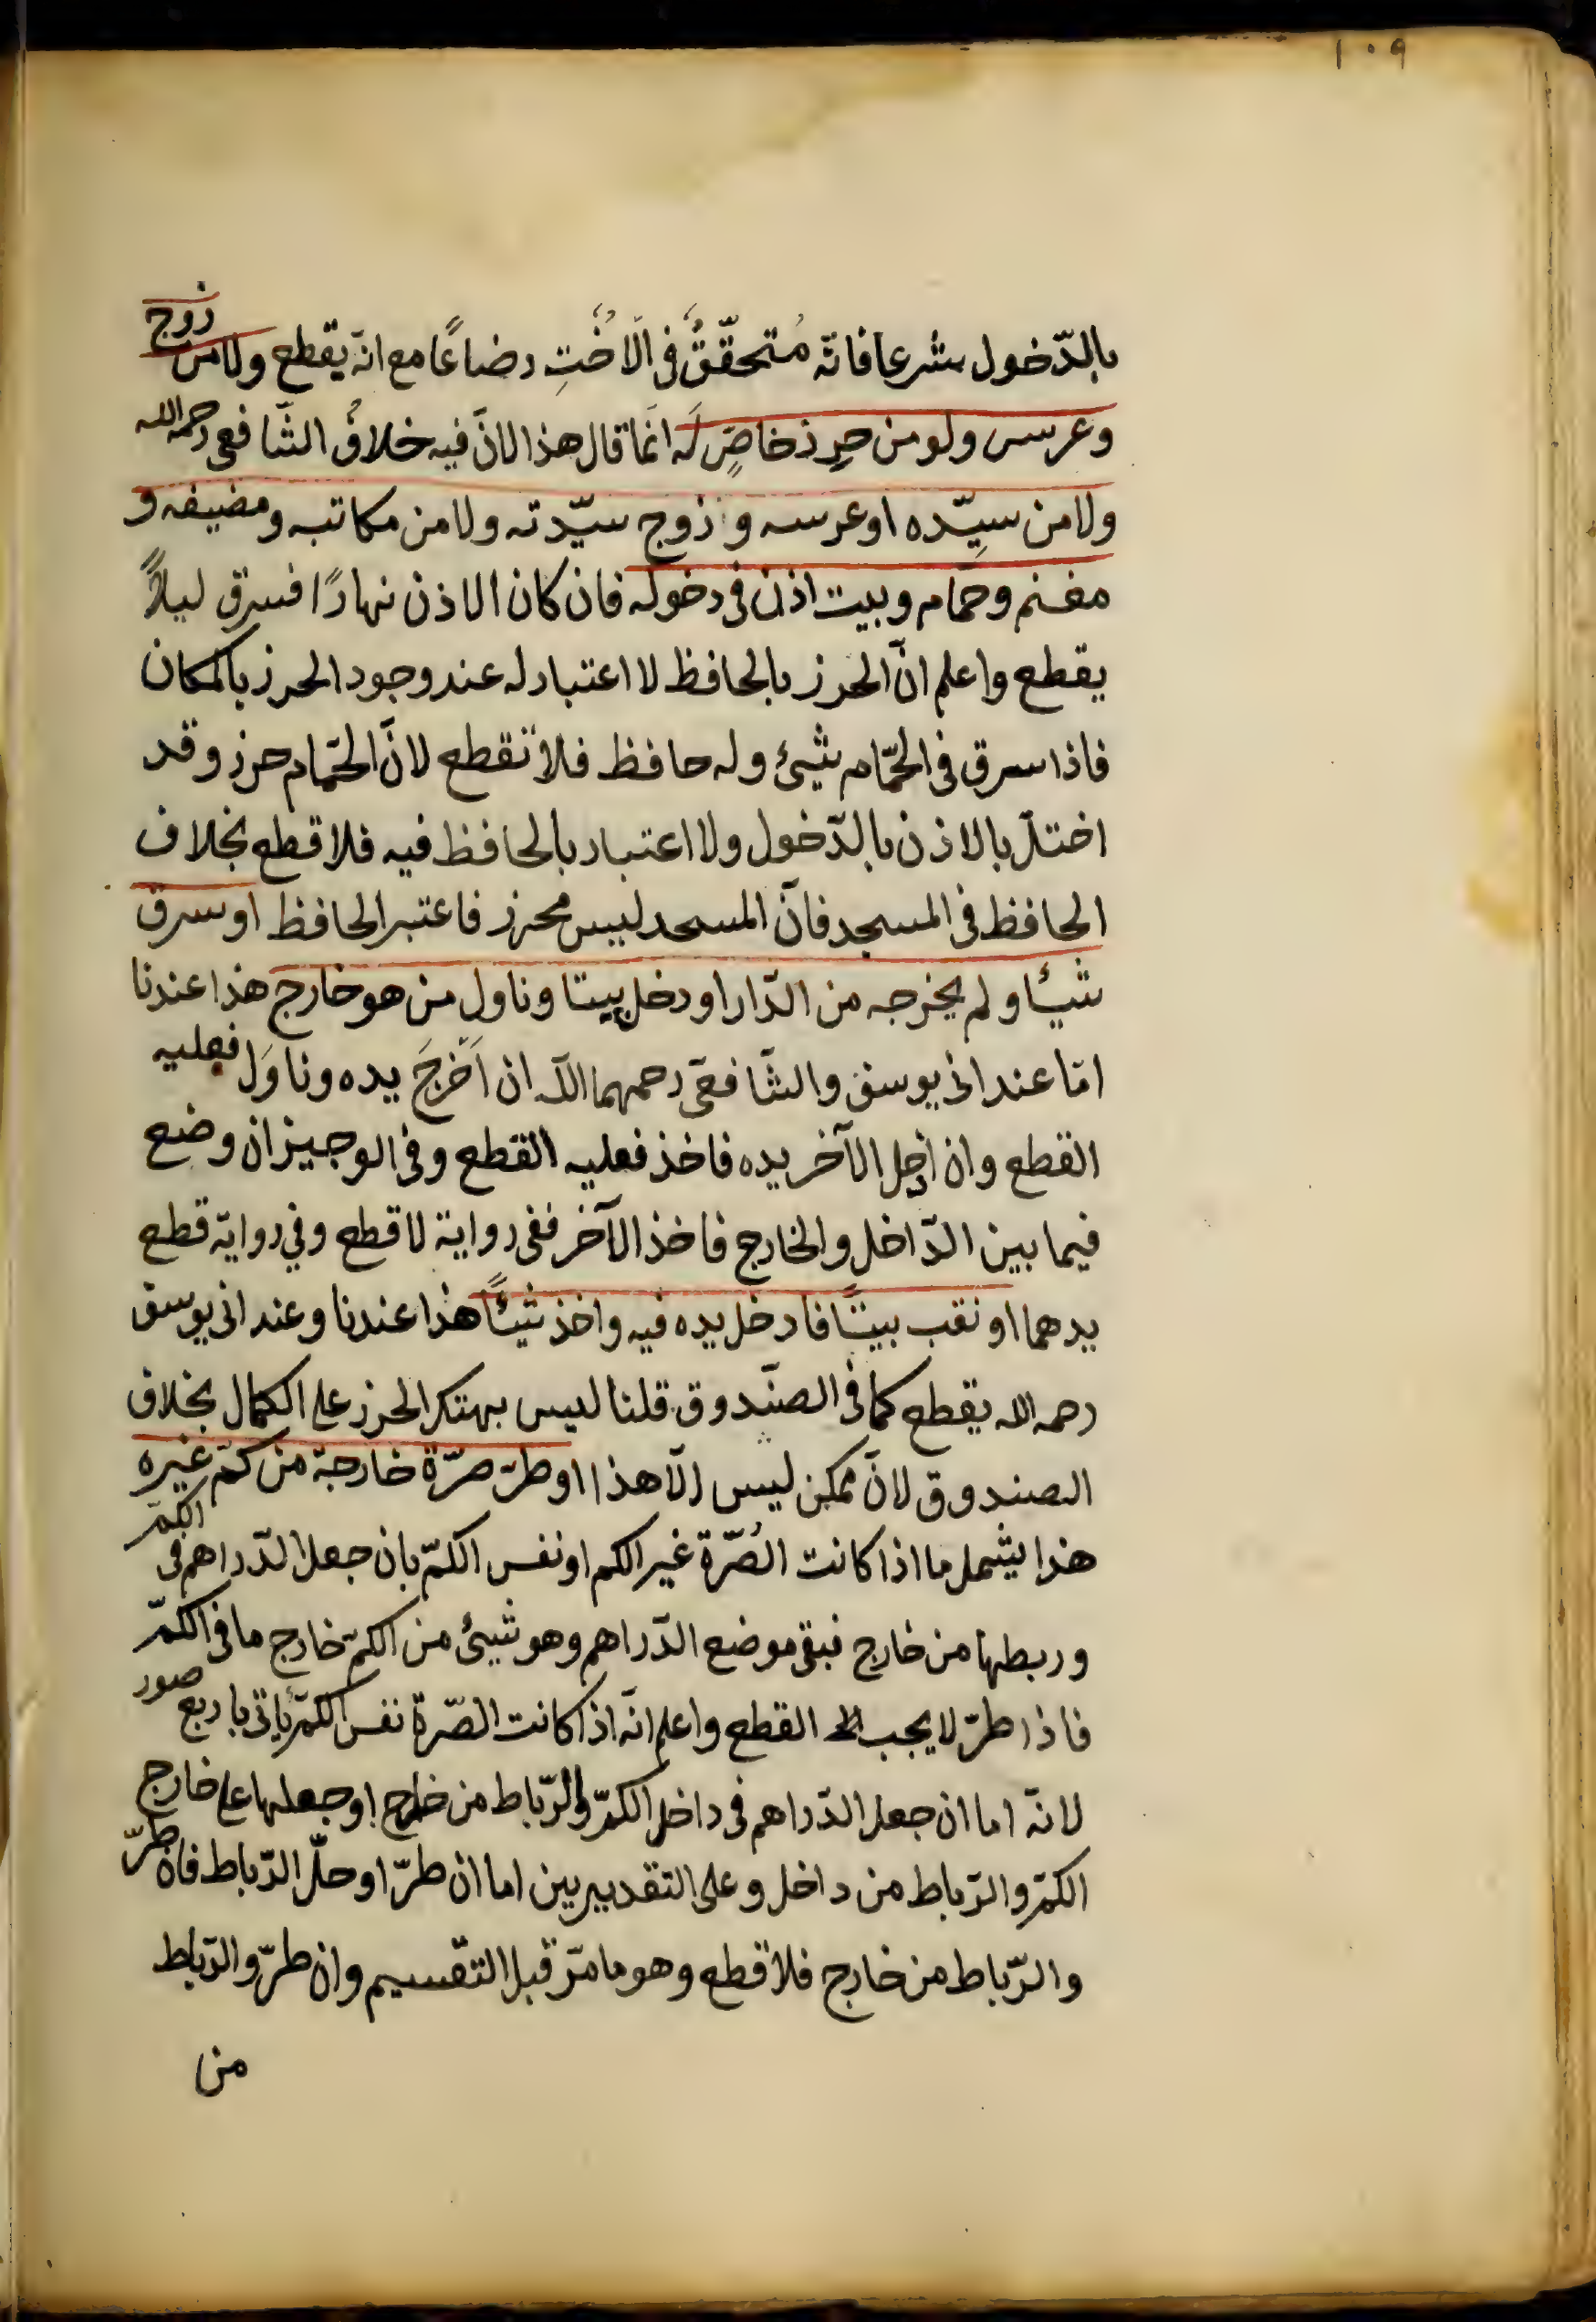 ١٠٩
بالدّخول شرعا فانّه مُتحقّقٌ في الَاخُتِ رضاعًا مع انّه يقطع ولا من زوج
وعرس ولو من حِرزخاصٍّ لَه انمّا قال هذا لانّ فيه خلافُ الشّافعى رحمه الله
ولا من سيِّده اوعرسه و زوج سيّدته ولا من مكاتبه ومضيفه و
مغنم وحمّام وبيت اذن فى دخوله فان كان الاذن نهارًا فسرق ليلاً
يقطع واعلم انّ الحرز بالحافظ لا اعتبار له عند وجود الحرز بالمكان
فاذا سرق فى الحمّام شيئ وله حافظ فلا تقطع لانّ الحمّام حرز وقد
اختلّ بالاذن بالدّخول ولا اعتبار بالحافظ فيه فلا قطع بخلاف
الحافظ فى المسجد فانّ المسجد ليس محرز فاعتبر الحافظ اوسرق
شيئا ولم يخرجه من الدّار اودخل بيتا وناول من هو خارج هذا عندنا
امّا عند ابى يوسف والشّافعىّ رحمهما اللّه ان اَخرجَ يده وناوَل فعليه
القطع وان ادخل الآخر يده فاخذ فعليه القطع وفى الوجيز ان وضع
فيما بين الدّاخل والخارج فاخذ الآخر ففى رواية لا قطع وفي رواية قطع
يدهما اونقب بيتًا فادخل يده فيه واخذ شيئًا هذا عندنا وعند ابى يوسف
رحمه الله يقطع كما فى الصنّدوق قلنا ليس بهتك الحرز على الكمال بخلاف
الصندوق لانّ ممكن ليس الّا هذا اوطرّ صرّة خارجة من كمّ غيره
هذا يشمل ما اذا كانت الصُرّة غير الكم او نفس الكمّ بان جعل الدّراهم فى الكمّ
وربطها من خارج فبقى موضع الدّراهم وهو شيئ من الكمّ خارج ما فى الكمّ
فاذا طرّ لا يجب القطع واعلم انّه اذا كانت الصّرة نفس الكمّ يأتى باربع صور
لانّه اما ان جعل الدّراهم فى داخل الكمّ والرّباط من خارج اوجعلها على خارج
الكمّ والرّباط من داخل وعلى التقديريين اما ان طرّ اوحلّ الرّباط فان طرّ
والرّباط من خارج فلا قطع وهو ما مرّ قبل التقسيم وان طرّ والرّباط
من